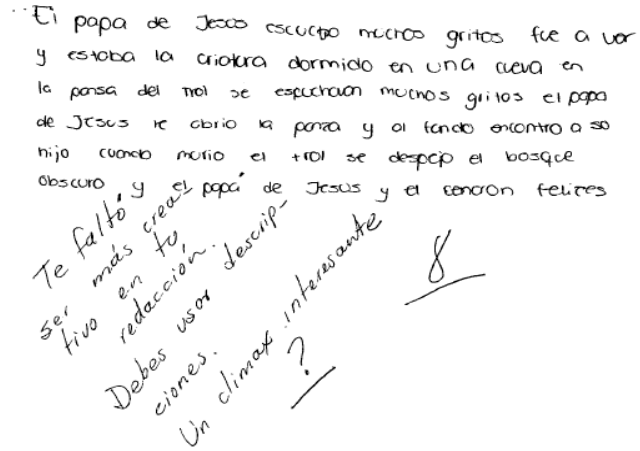 El papa de Jesus escucho muchos gritos fue a ver
y estaba la criatura dormido en una cueva en
la pansa del trol se espuchavan muchos gritos el papa
de Jesus le abrio la panza y al fondo encontro a so
hijo cuando murio el trol se despejo el bosque
obscuro y el papá de Jesus y el felices
Te faltó
ser más crea-
tivo en tu
redacción.
Debes usar descrip-
ciones.
Un climax interesante
?
8